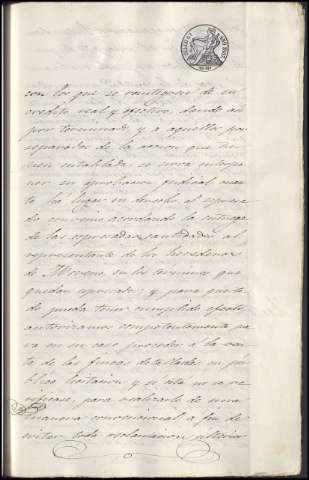 con los que se reintegran de su
credito real y efectivo, dando asi
por terminado y a aquellos por
separados de la accion que ha
bian entablado, se sirva interpo
ner su aprobacion judicial cuan
to ha lugar en derecho al espresa
do convenio acordando la entrega
de las espresadas cantidades al
representante de los herederos
de Moreno en los terminos que
quedan espresados; y para que es
te pueda tener cumplido efecto
autorizarnos competentemente pa
ra en su caso proceder a la ven
ta de las fincas detalladas en pú
blica licitacion y si esta no se ve
rificase, para realizarlo de una
manera convencional a fin de
evitar toda reclamacion ulterior